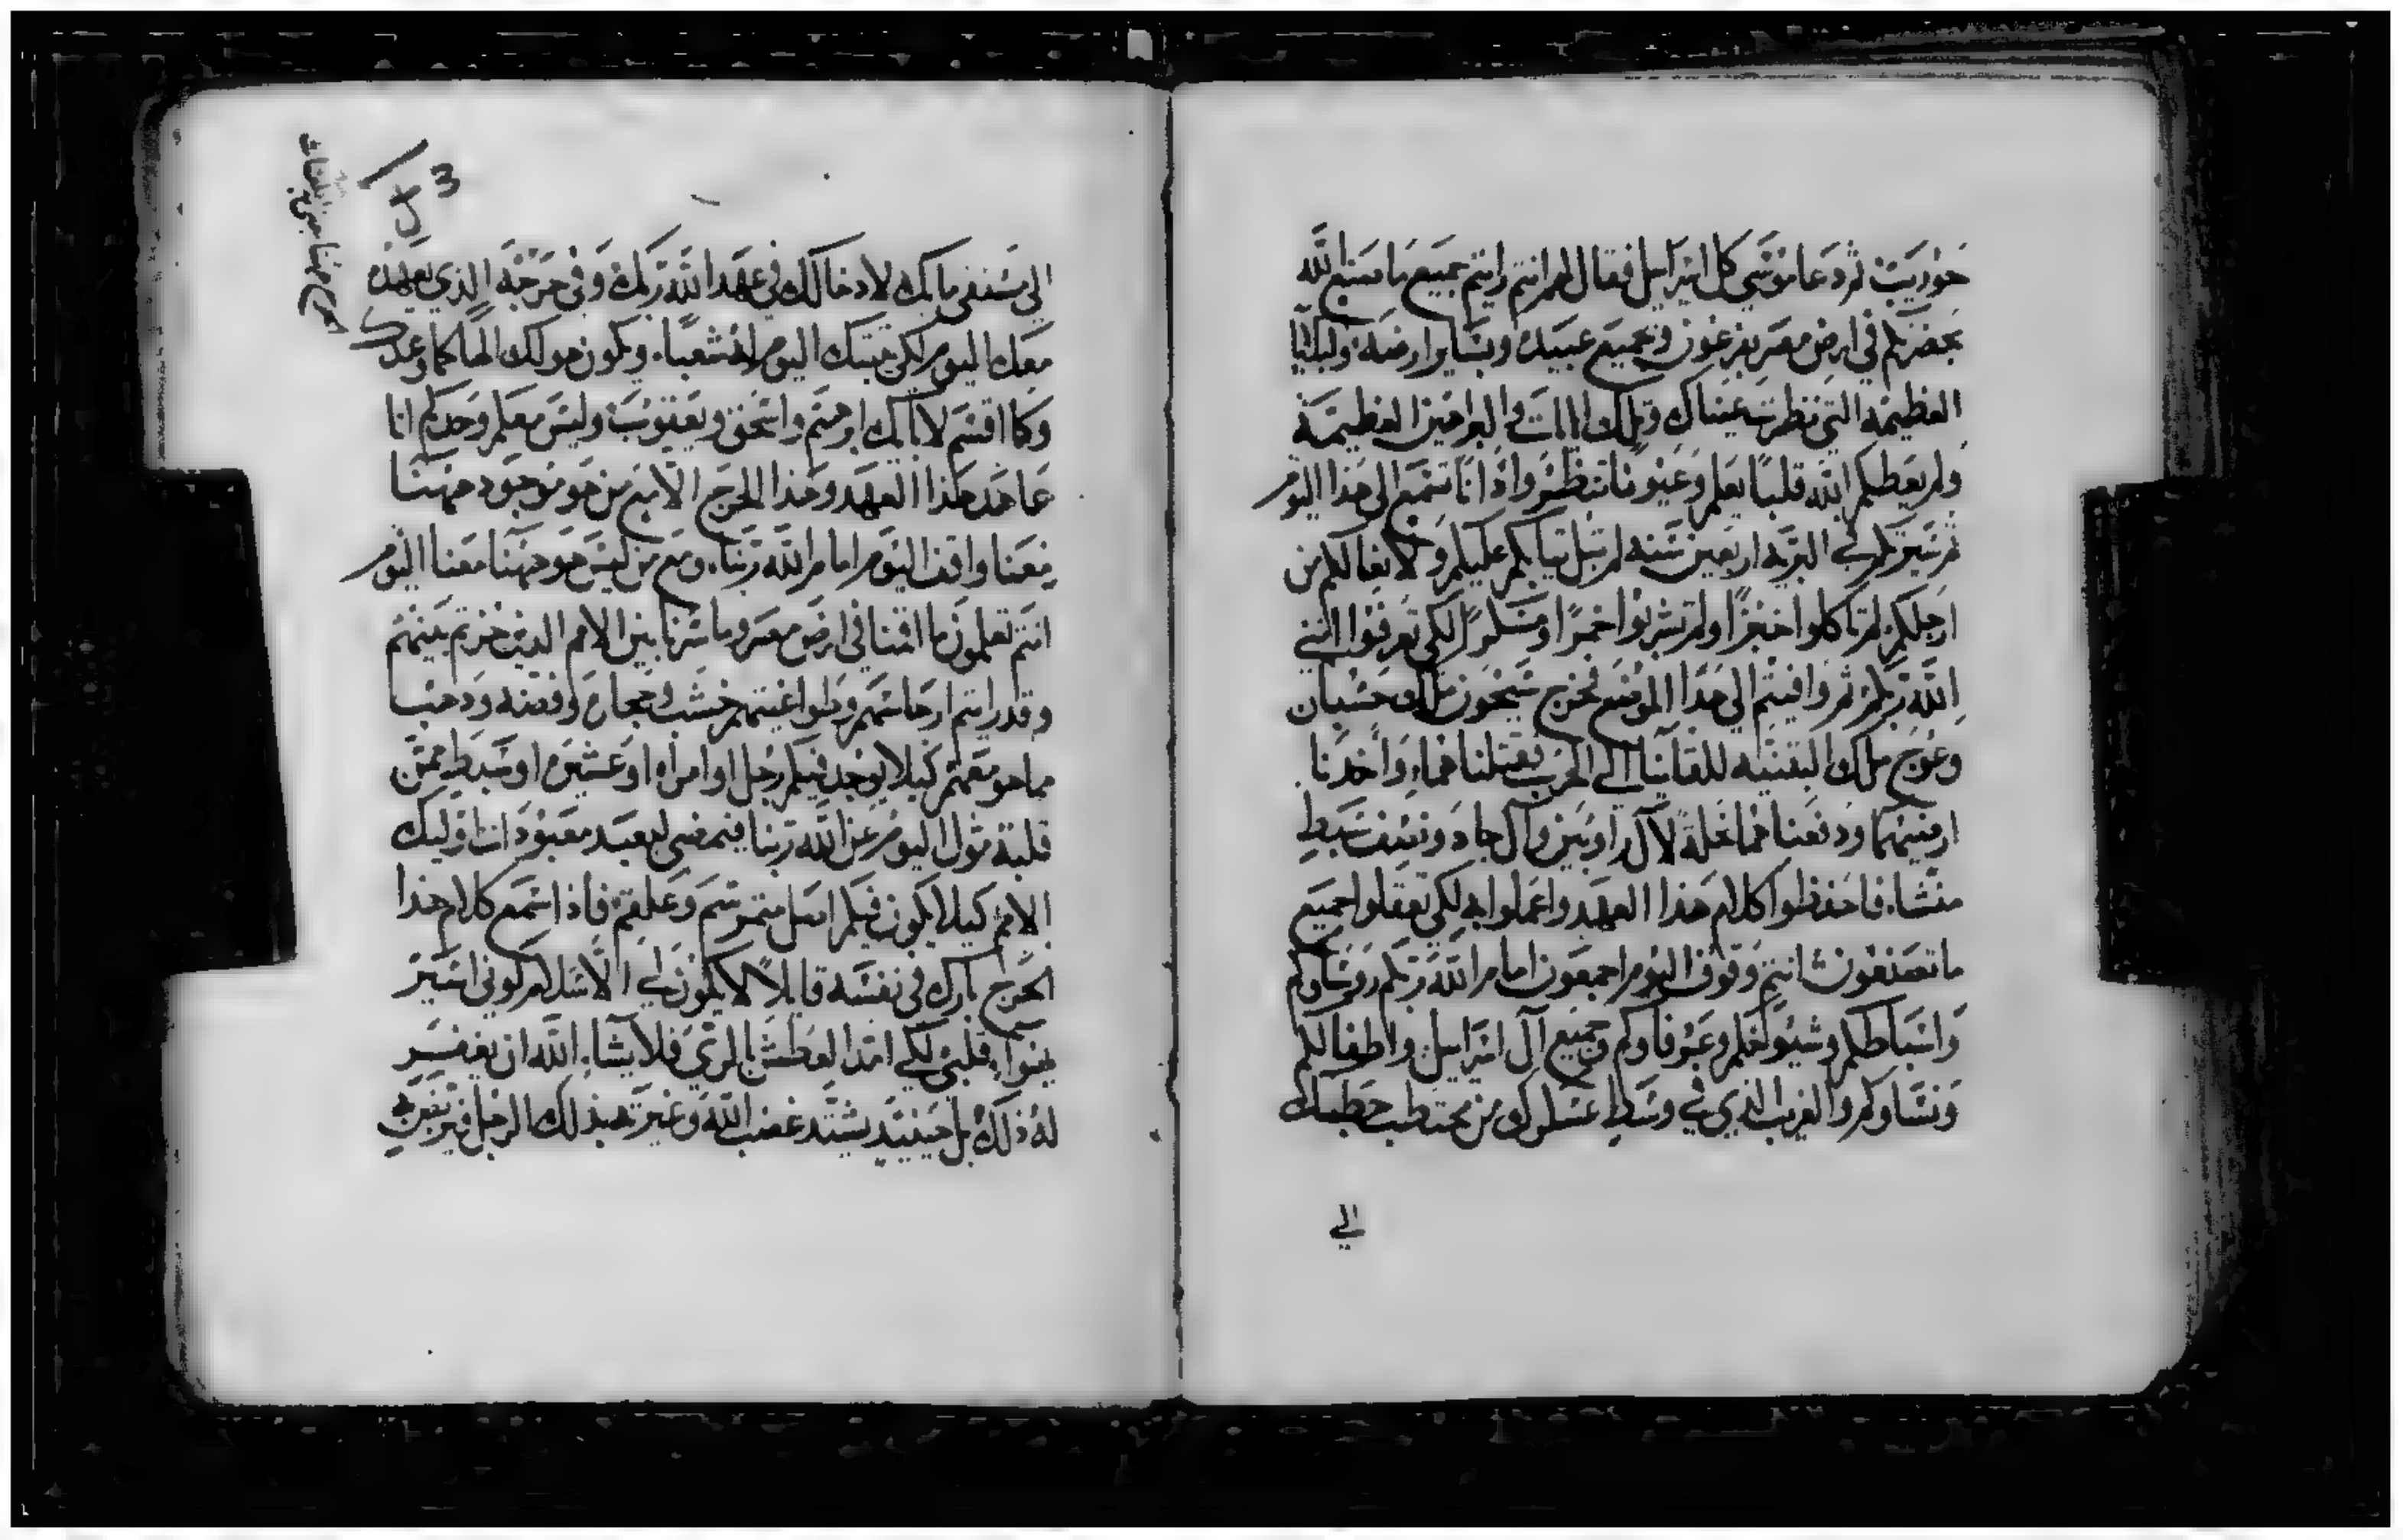 حوريب ثم دعا موسي كل اسراييل فقال لهم انتم رايتم جميع ما صنع الله
بحضرتكم في ارض مصر بفرعون وبجميع عبيده وبساير ارضه والبلايا
العظيمه التي نظرت عيناك وتلك الايات والبراهين العظيمه
ولم يعطكم الله قلبا يعلم وعيونا تنظر واذانا تسمع الي هذا اليوم
ثم سيرتكم في البريه اربعين سنه لم تبل ثيابكم عليكم ولا نعالكم من
ارجلكم لم تاكلوا خبزا ولم تشربوا خمرا ومسكرا لكي تعرفوا انني
الله ربكم ثم وافيتم الي هذا الموضع فخرج سيحون ملك حسبان
وعوج ملك البثنيه للقاينا الي الحرب فقتلناهما واخذنا
ارضيهما ودفعناهما نحلة لآل راوبين وآل جاد ونصف سبط
منشا فاحفظوا كلام هذا العهد واعملوا به لكي تعقلوا جميع
ما تصنعون انتم وقوف اليوم اجمعون امام الله ربكم روساوكم
واسباطكم وشيوخكم وعرفاوكم وجميع آل اسراييل واطفالكم
ونساوكم والغريب الذي في وسط عسكرك من محتطب حطبك
الي
الي مستقي مايك لادخالك في عهد الله ربك وفي حرجه الذي يعهده
معك اليوم لكي يثبتك اليوم له شعبا ويكون هو لك الها كما وعدك
وكما اقسم لابايك ابرهيم واسحق ويعقوب وليس معكم وحدكم انا
عاهد هذا العهد وهذا الحرج الا مع من هو موجود ههنا
معنا واقف اليوم امام الله ربنا ومع من ليس هو ههنا معنا اليوم
انتم تعلمون ما اقمنا في ارض مصر وما سرنا بين الامم الذين جزتم بينهم
وقد رايتم ارجاسهم وطواغيتهم خشب وحجاره وفضه ودهب
مما هو معهم كيلا يوجد فيكم رجل او امراه او عشيره او سبط ممن
قلبه مول اليوم عن الله ربنا فيمضي ليعبد معبودات اوليك
الامم كيلا يكون فيكم اصل مثمر سم وعلقم فاذا سمع كلام هذا
الحرج بارك في نفسه قايلا لا يكون لي الا سلام كوني اسير
بهوا قلبي لكي امتد العطش بالري فلا يشا الله ان يغفر
له ذلك بل حينيد يشتد غضب الله وغيرته بذلك الرجل